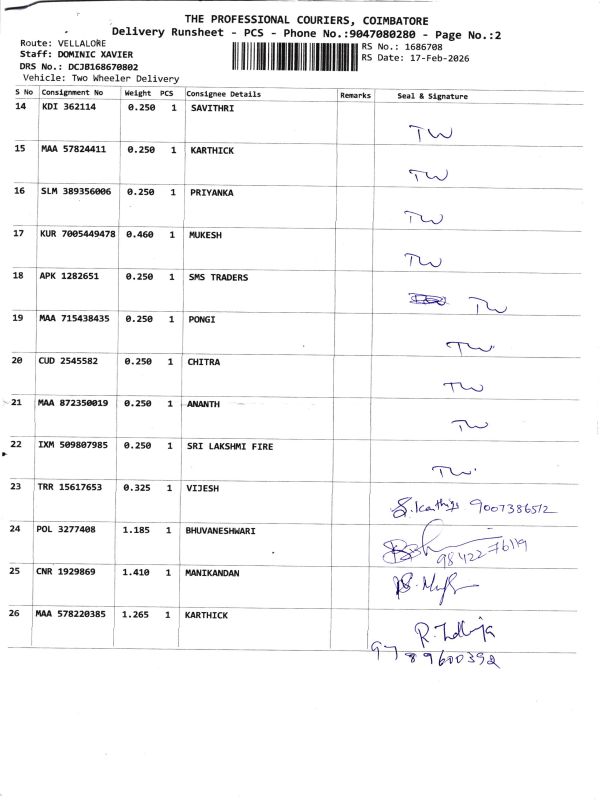 THE PROFESSIONAL COURIERS, COIMBATORE
Delivery Runsheet - PCS - Phone No.:9047080280 - Page No.:2
Route: VELLALORE
Staff: DOMINIC XAVIER
DRS No.: DCJB168670802
Vehicle: Two Wheeler Delivery
RS No.: 1686708
RS Date: 17-Feb-2026
S No Consignment No Weight PCS Consignee Details Remarks Seal & Signature
14 KDI 362114 0.250 1 SAVITHRI
TW
15 MAA 57824411 0.250 1 KARTHICK
TW
16 SLM 389356006 0.250 1 PRIYANKA
TW
17 KUR 7005449478 0.460 1 MUKESH
TW
18 APK 1282651 0.250 1 SMS TRADERS
TW
19 MAA 715438435 0.250 1 PONGI
TW
20 CUD 2545582 0.250 1 CHITRA
TW
21 MAA 872350019 0.250 1 ANANTH
TW
22 IXM 509807985 0.250 1 SRI LAKSHMI FIRE
TW
23 TRR 15617653 0.325 1 VIJESH
9007386512
24 POL 3277408 1.185 1 BHUVANESHWARI
98422 76119
25 CNR 1929869 1.410 1 MANIKANDAN
26 MAA 578220385 1.265 1 KARTHICK
9789600392